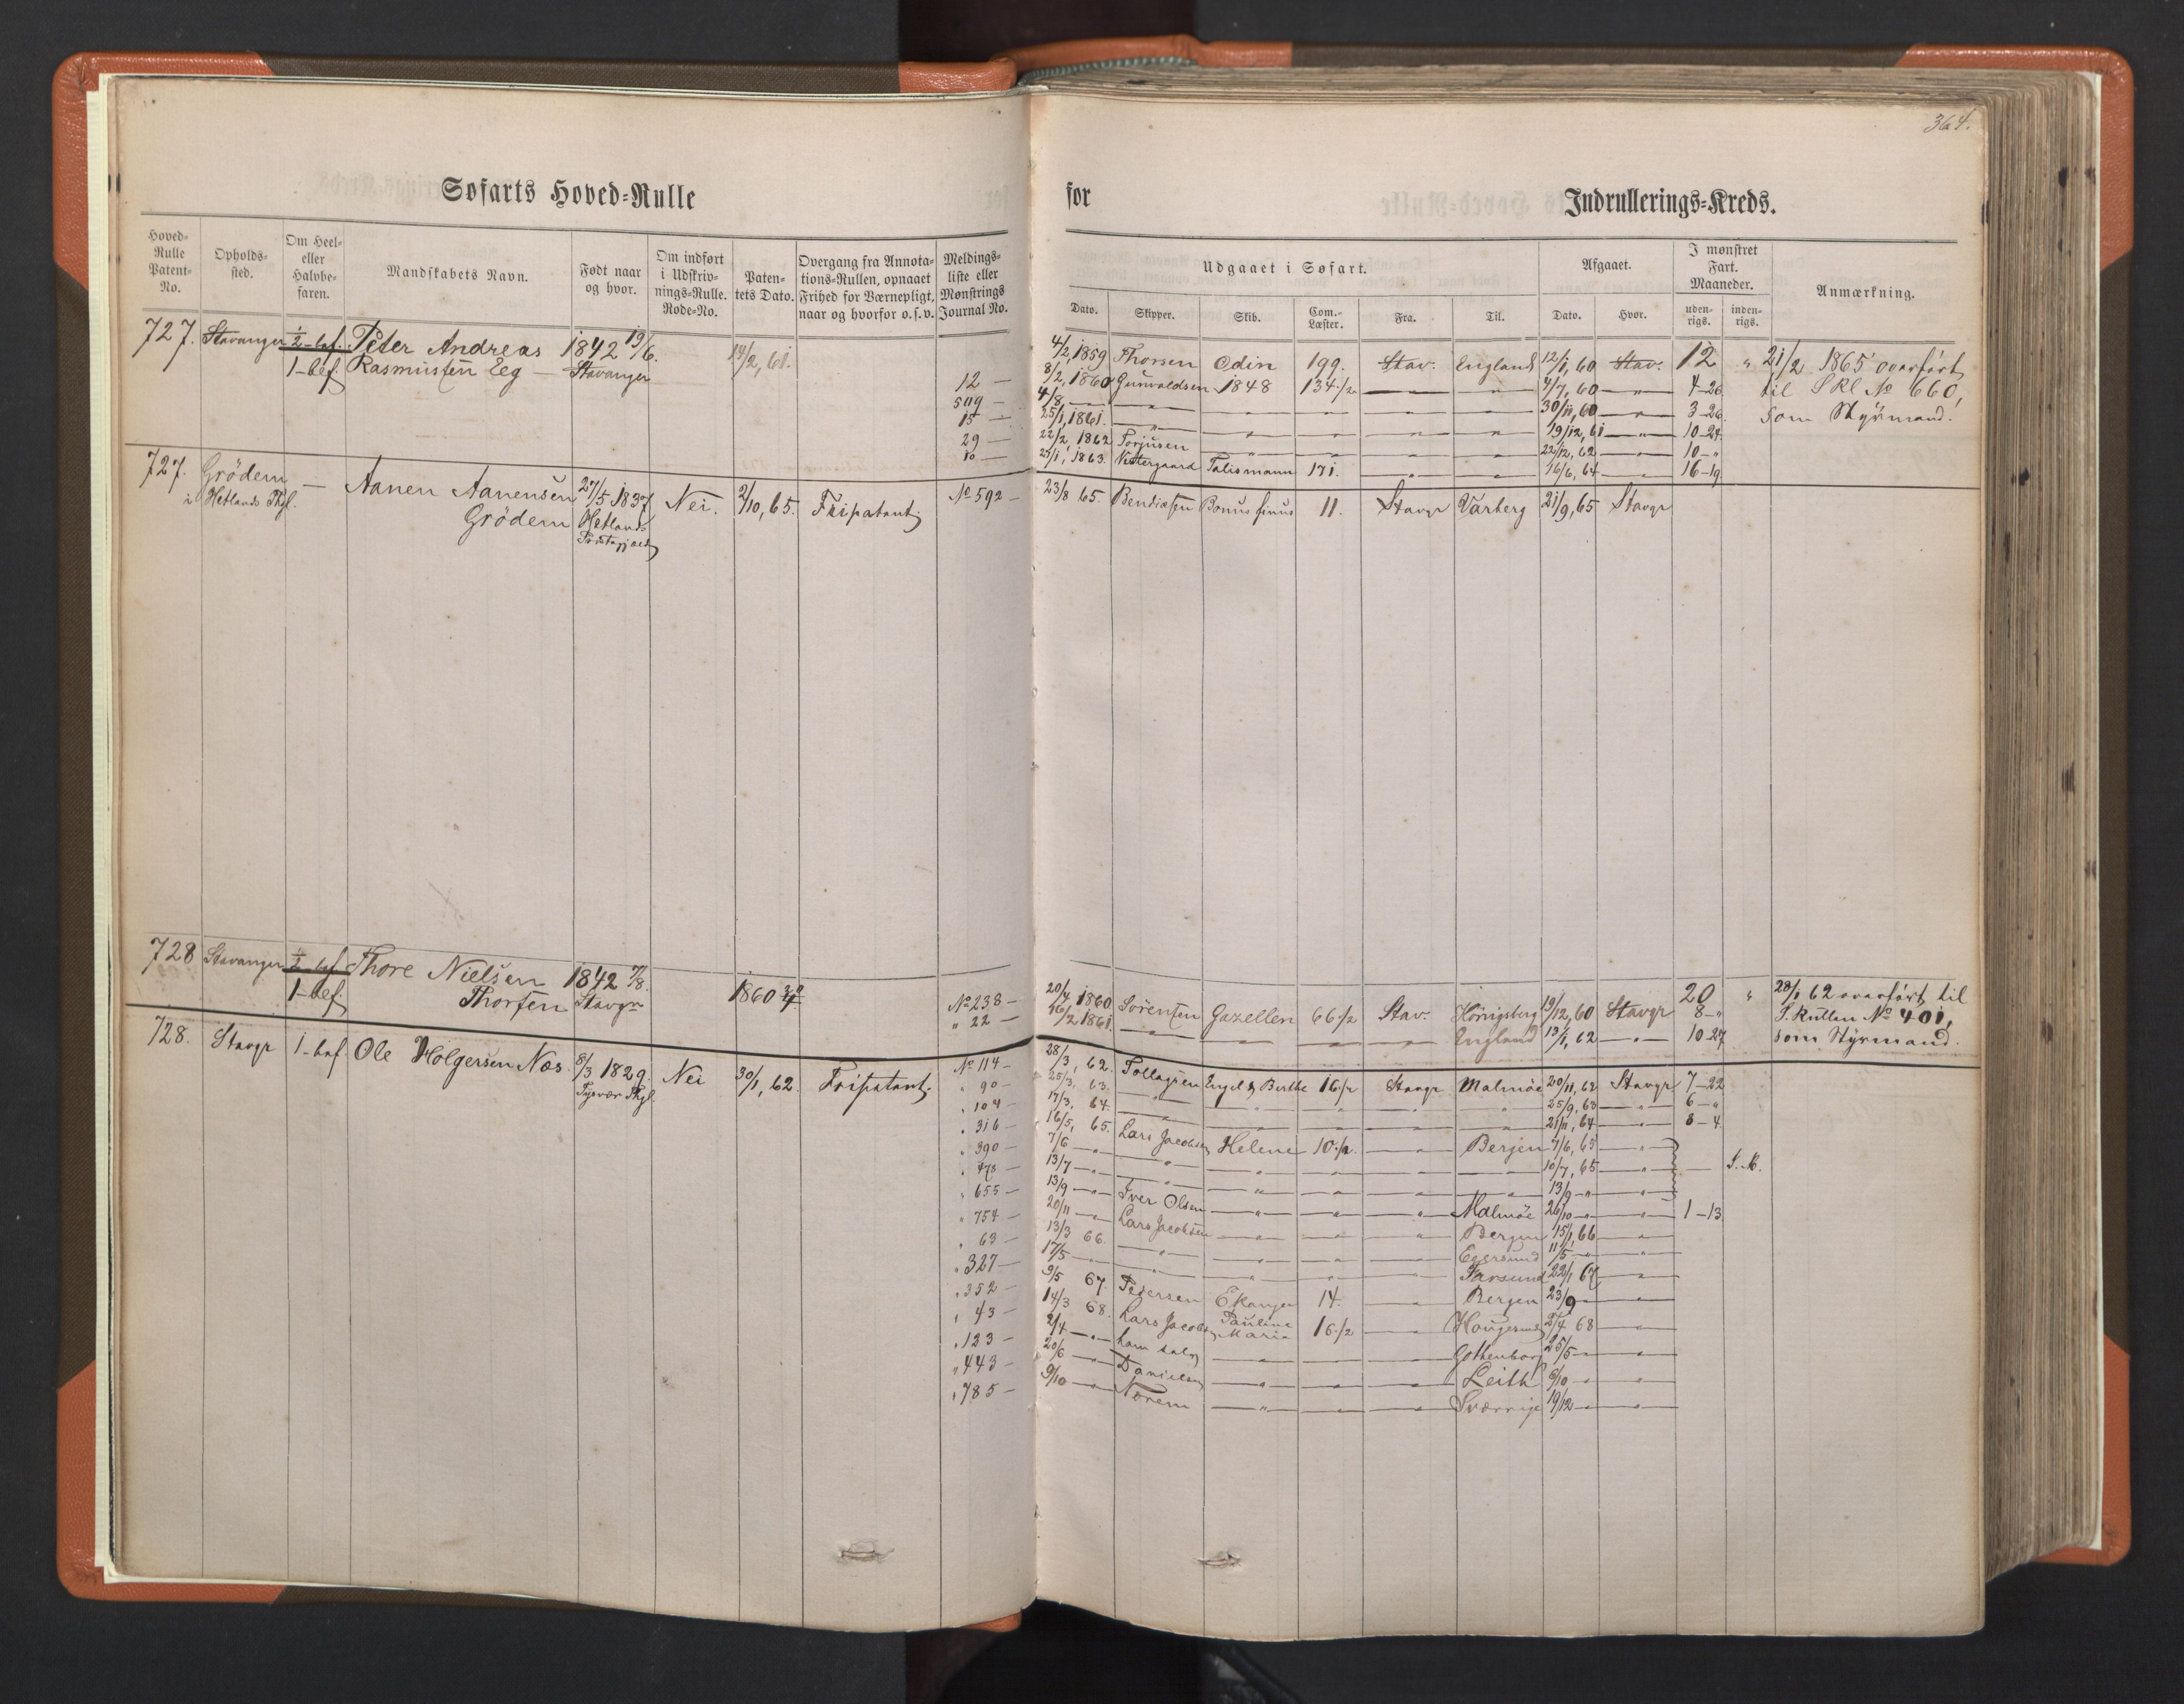 364.
Søfarts Hoved=Rulle
for Indrullerings=Kreds.
Hoved=Rulle Patent=No.
Opholds=sted.
Om Heel= eller Halvbe=faren.
Mandskabets Navn.
Født naar og hvor.
Om indført i Udskriv=nings=Rulle. Rode=No.
Paten=tets Dato.
Overgang fra Annota=tions=Rullen, opnaaet Frihed for Værnepligt, naar og hvorfor o.s.v.
Meldings=liste eller Mønstrings Journal No.
Udgaaet i Søfart.
Dato. Skipper. Skib. Com.=Læster. Fra. Til.
Afgaaet.
Dato. Hvor.
I mønstret Fart. Maaneder.
uden=rigs. inden=rigs.
Anmærkning.
727. Stavanger ½-bef. Peter Andreas 1842 19/6.
1-bef. Rasmussen Eeg — Stavanger 14/2, 61.
4/2, 1859 Thorsen Odin 199. Stav. England 12/1, 60 Stav. 12 " 21/2 1865 overført
12 — 8/2, 1860 Gunvaldsen 1848 134½ — — 4/7, 60 — " — 4-26 til S Rl No 660,
509 — 4/8 — — " — — — — 30/11, 60 — " — 3-26 som Styrmand.
15 — 25/1, 1861. — " — — — — 19/12, 61 — " — 10-24
29 — 22/2, 1862 Torjusen — " — — — 22/12, 62 — " — 10-"
10 — 25/1, 1863. Vestergaard Talismann 171. — — 16/6, 64 — " — 16-19
727. Grödem — Aanen Aanensen 27/5 1837 Nei. 2/10, 65. Fripatent. No 592 — 23/8 65. Bendixsen Bonus finus 11. Stavgr Varberg 21/9, 65 Stavgr
i Hetlands Thgl. Grödem Hetlands
Præstegjæld
728 Stavanger ½-bef Thore Nielsen 1842 7/8.
1-bef. Thorsen Stavgr 1860
No 238 — 20/7, 1860 Sörensen Gazellen 66½ Stav. Königsberg 19/12, 60 Stavgr 20 8-" " 28/1 62 overført til
" 22 — 16/2 1861. — " — — " — — " — — " — England 13/1, 62 — " — 10-27 S. Rullen No 401,
som Styrmand.
728. Stavgr 1-bef. Ole Holgersen Næs 8/3 1829. Nei 30/1, 62. Fripatent.
Tysvær Thgl.
No 114 — 28/3, 62. Tollagsen Engel & Berthe 16½ Stavgr Malmöe 20/11, 62 Stavgr 7-22
" 90 — 25/3, 63. — " — — " — — " — — " — — " — 25/9, 63 — " — 6-"
" 104 — 17/3, 64. — " — — " — — " — — " — 21/11, 64 — " — 8-4
" 316 — 16/5, 65. Lars Jacobsen Helene 10½. — " — Bergen 7/6, 65 — " —
" 390 — 7/6 — " — — " — — " — — " — — " — 10/7, 65 — " — — I. M.
" 478 — 13/7 — " — — " — — " — — " — — " — 13/9 — " — — " —
" 655 — 13/9 — " — Iver Olsen — " — — " — — " — Malmöe 26/10 — " — — " — 1-13
" 754 — 20/11 — " — Lars Jacobsen — " — — " — — " — Bergen 15/1, 66 — " —
" 63 — 13/3 66. — " — — " — — " — — " — Egersund 11/5 — " — — " —
" 327 — 17/5 — " — — " — — " — — " — — " — Farsund 22/1 67 — " —
" 352 — 9/5 67 Pedersen Ekanger 14. — " — Bergen 23/9 — " — — " —
" 43 — 14/3 68. Lars Jacobsen Pauline Maria 16½ — " — Haugesund 2/4 68 — " —
" 123 — 2/4 — " — — " — — " — — " — Gothenborg 25/5 — " — — " —
" 443 — 20/6 — " — Danielsen — " — — " — — " — Leith 6/10 — " — — " —
" 785 — 9/10 — " — Norem — " — — " — — " — Sverrige 19/12 — " — — " —